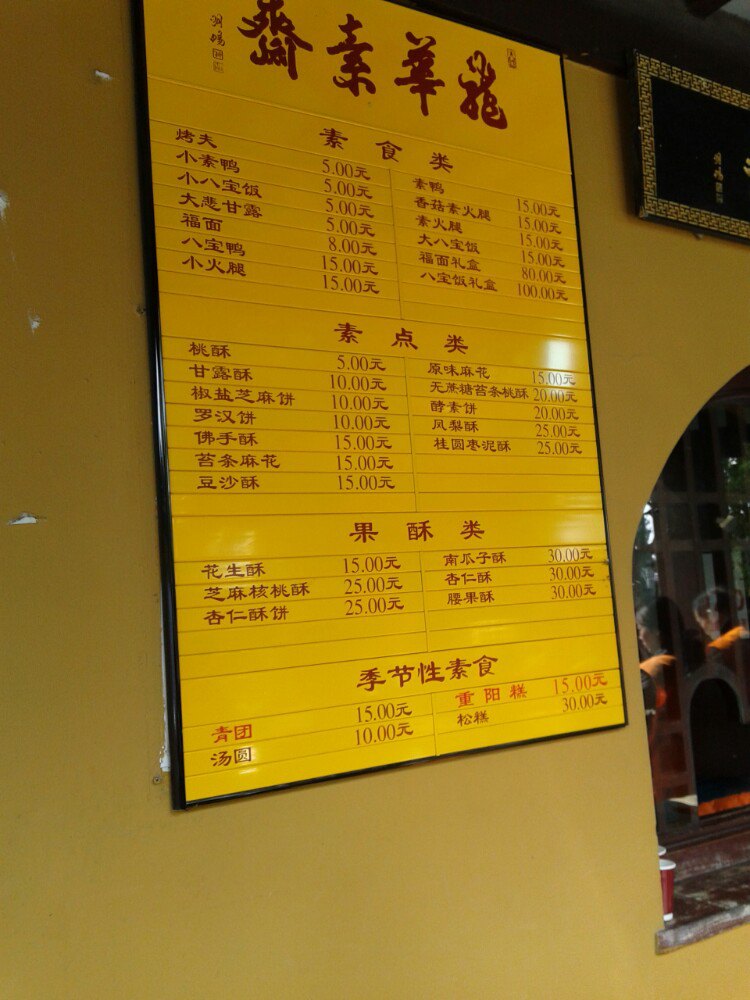 齋素華龍
素食类
烤夫 5.00元
小素鸭 5.00元
小八宝饭 5.00元
大悲甘露 5.00元
福面 8.00元
八宝鸭 15.00元
小火腿 15.00元
素鸭 15.00元
香菇素火腿 15.00元
素火腿 15.00元
大八宝饭 15.00元
福面礼盒 80.00元
八宝饭礼盒 100.00元
素点类
桃酥 5.00元
甘露酥 10.00元
椒盐芝麻饼 10.00元
罗汉饼 10.00元
佛手酥 15.00元
苔条麻花 15.00元
豆沙酥 15.00元
原味麻花 15.00元
无蔗糖苔条桃酥 20.00元
酵素饼 20.00元
凤梨酥 25.00元
桂圆枣泥酥 25.00元
果酥类
花生酥 15.00元
芝麻核桃酥 25.00元
杏仁酥饼 25.00元
南瓜子酥 30.00元
杏仁酥 30.00元
腰果酥 30.00元
季节性素食
青团 15.00元
汤圆 10.00元
重阳糕 15.00元
松糕 30.00元